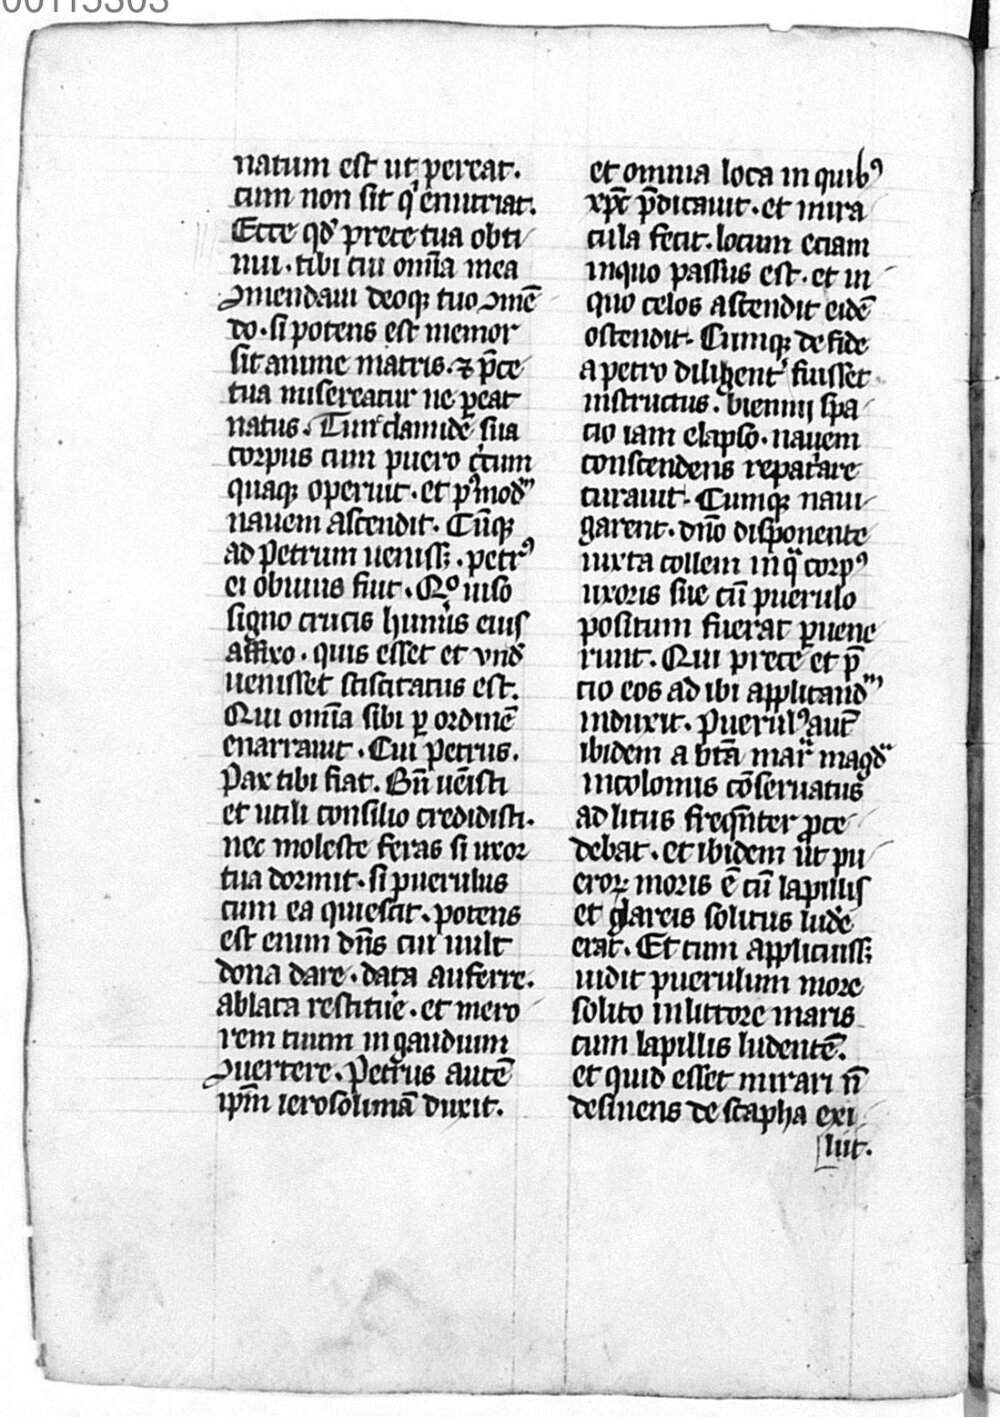 00115303
natum est ut pereat.
cum non sit qͥ enutriat.
Ecce qd̓ prece tua obti
nui. tibi cui om̄ia mea
ꝯmendaui deoqꝫ tuo ꝯmē
do. si potens est memor
sit anime matris. ⁊ p̄ce
tua misereatur ne ꝑeat
natus. Tūc clamidē sua
corpus cum puero cͥcum
quaqꝫ operuit. et pꝰmodͫ
nauem ascendit. Cūqꝫ
ad Petrum uenissꝫ. petrꝰ
ei obuius fuit. Qͦ uiso
signo crucis humeris eius
affixo. quis esset et vnd̓
uenisset sciscitatus est.
Qui om̄ia sibi ꝑ ordinē
enarrauit. Cui Petrus.
Pax tibi fiat. Bn̄ uēisti
et utili consilio credidisti.
nec moleste feras si uxor
tua dormit. si puerulus
cum ea quiescit. potens
est enim dn̄s cui uult
dona dare. data auferre.
ablata restitue̓. et mero
rem tuum in gaudium
ꝯuertere. Petrus autē
ip̄m ierosolimā duxit.
et omnia loca in quibꝰ
xp̄c p̄dicauit. et mira
cula fecit. locum eciam
inquo passus est. et in
quo celos ascendit eidē
ostendit. Cumqꝫ de fide
a petro diligent̓ fuisset
instructus. biennij spa
cio iam elapso. nauem
conscendens repat̓are
curauit. Cumqꝫ naui
garent. dn̄o disponente
iuxta collem in qͣ corpꝰ
uxoris sue cū puerulo
positum fuerat ꝑuene
runt. Qui prece et p̄
cio eos ad ibi applicandͫ
induxit. Puerulꝰ autē
ibidem a btā marͣ magdͣ
incolomis cōseruatus
ad litus freqn̄ter ꝓce
debat. et ibidem ut pu
eroꝝ moris ē cū lapillis
et glareis solitus lude̓
erat. Et cum applicuissꝫ
uidit puerulum more
solito in littore maris
cum lapillis ludentē.
et quid esset mirari n̄
desinens de scapha exi
luit.